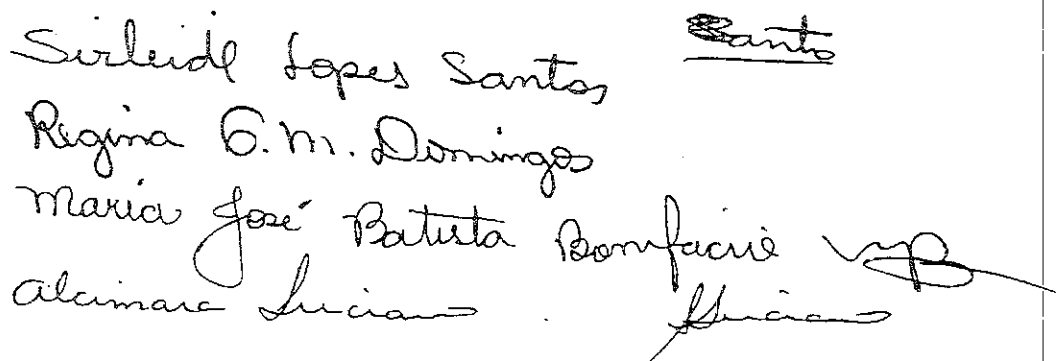 Sirleide Lopes Santos Santos
Regina G. M. Domingos
Maria José Batista Bonifacio
Alcimara Luciano Luciano